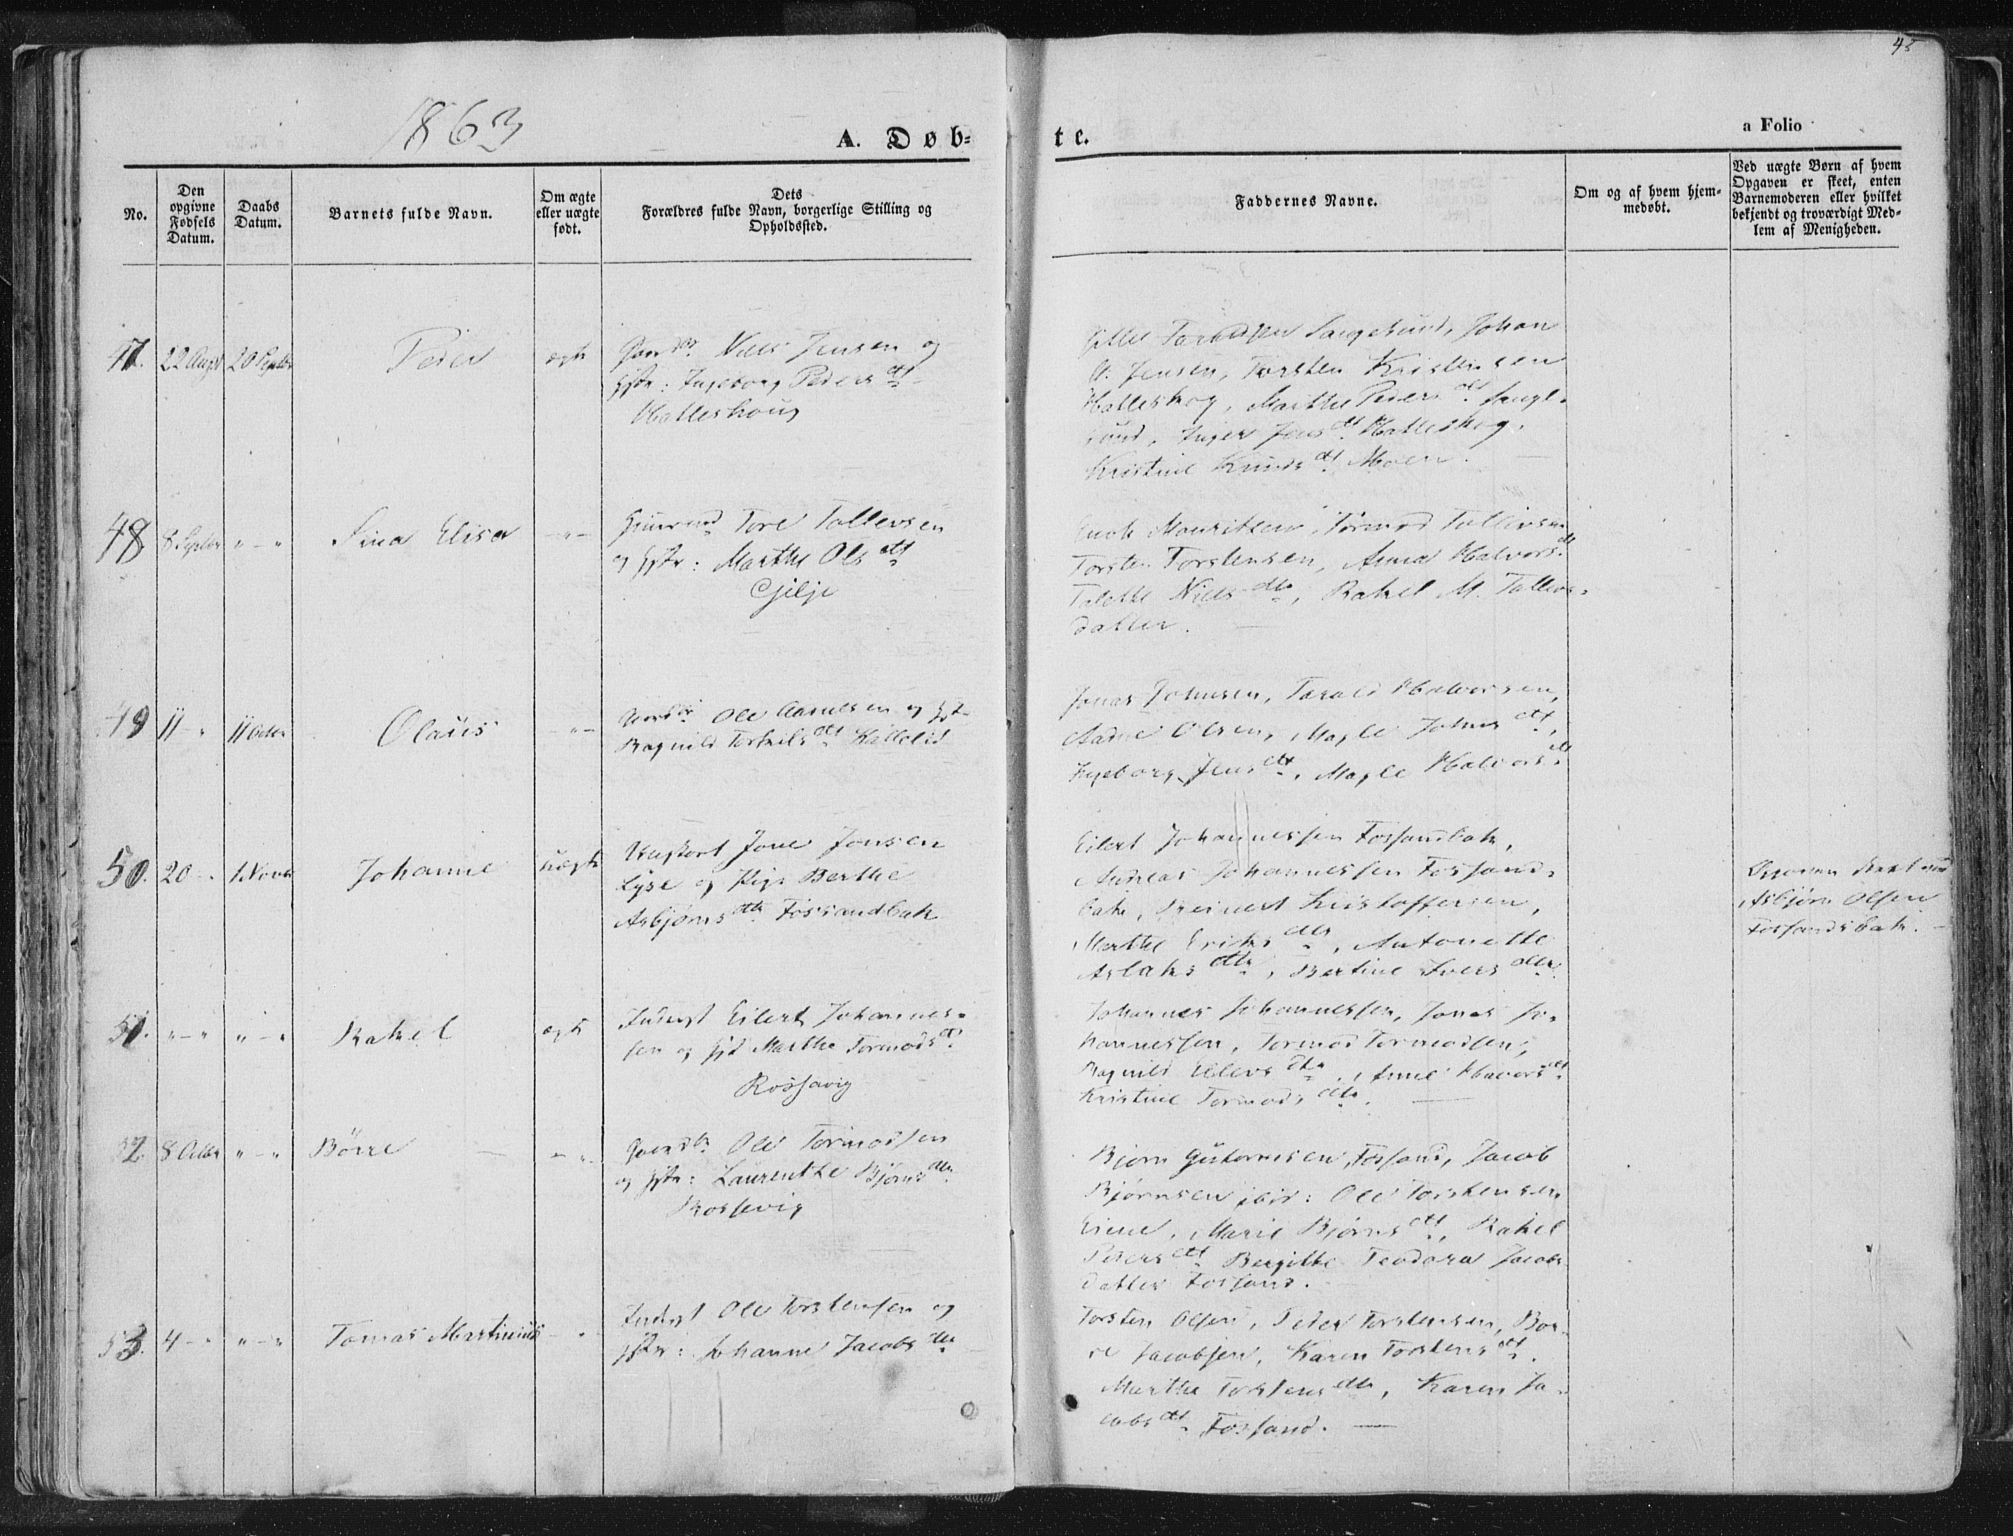 45
1863
A. Døb-
te.
a Folio
No.
Den
opgivne
Fødsels
Datum.
Daabs
Datum.
Barnets fulde Navn.
Om ægte
eller uægte
født.
Dets
Forældres fulde Navn, borgerlige Stilling og
Opholdssted.
Faddernes Navne.
Om og af hvem hjem-
medøbt.
Ved uægte Børn af hvem
Opgaven er skeet, enten
Barnemoderen eller hvilket
bekjendt og troværdigt Med-
lem af Menigheden.
47. 22 Augst 20 Septbr Peder ægte
Niels Jensen og
Hstr: Ingeborg Pedersdtr
Halleskoug
Johan
A. Jensen, Torsten Kristensen
Halleskog, Marthe Pedersdtr
Inger Jensdtr Halleskog,
Kristine Knudsdtr Moen.
48 8 Septbr " - " Sina Elisa - " -
Tore Tollevsen
og Hstr: Marthe Olsdtr
Gilje
Enok Mouritsen, Tormod Tollevsen
Torsten Torstensen, Anna Halvorsdtr
Nielsdtr, Rakel M. Tollevs-
datter.
49 11 - " 11 Octbr Olaus - " -
Ole Aanensen og Hst-
Ragnild Torkilsdtr Kallelid
Jonas Johnsen, Tarald Halvorsen,
Aadne Olsen, Magle Johnsdtr,
Ingeborg Jensdtr, Magle Halvorsdtr
50. 20 - " 1 Novbr Johanne uægte
Ungkarl Jone Jonsen
Lyse og Pige Berthe
Asbjørnsdtr Fossandbak
Eilert Johannessen Fossandbak,
Andreas Johannessen Fossand-
bak, Reinert Kristoffersen,
Marthe Eriksdtr, Antonette
Aslaksdtr, Bertine Iversdtr
Asbjørn Olsen
Fossandsbak.
51. " - " " - " Rakel ægte
Inderst Eilert Johannes-
sen og Hst Marthe Tormodsdtr
Rossavig
Johannes Johannessen, Jonas Jo-
hannessen, Tormod Tormodsen,
Ragnild Eilevsdtr, Anne Havorsdtr
Kristine Tormodsdtr.
52. 8 Octbr " - " Börre - " -
Ole Tormodsen
og Hstr: Laurentze Bjørnsdtr
Rossevig
Bjørn Guttormsen, Fossand, Jacob
Bjørnsen ibid: Ole Torstensen
Eiene, Marie Bjørnsdtr, Rakel
Pedersdtr Bergithe Teodora Jacobs
datter Fossand.
53. 4 - " " - " Tomas Martinius - "
Inderst Ole Torstensen og
Hstr: Johanne Jacobsdtr
Torsten Olsen, Peder Torstensen, Bør-
re Jacobsen, Karen Torstensdtr.
Marthe Torstensdtr, Karen Ja-
cobsdtr Fossand.